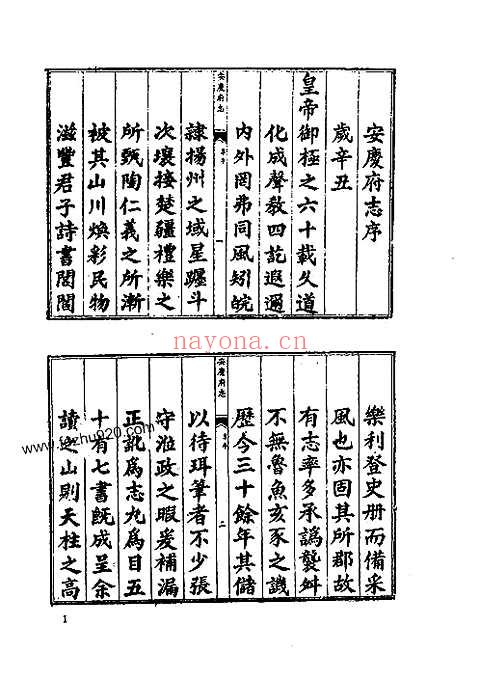 安慶府志序
歲辛丑
皇帝御極之六十載久道
化成聲教四訖遐邇
內外罔弗同風矧皖
安慶府志
一
隸揚州之域星躔斗
次壤接楚疆禮樂之
所甄陶仁義之所漸
被其山川煥彩民物
滋豐君子詩書閭閻
樂利登史册而備采
風也亦固其所郡故
有志率多承譌襲舛
不無魯魚亥豕之譏
歷今三十餘年其儲
安慶府志
二
以待珥筆者不少張
守涖政之暇爰補漏
正訛爲志九爲目五
十有七書既成呈余
讀之山則天柱之高
1
nayona.cn
www.ezhu920.com